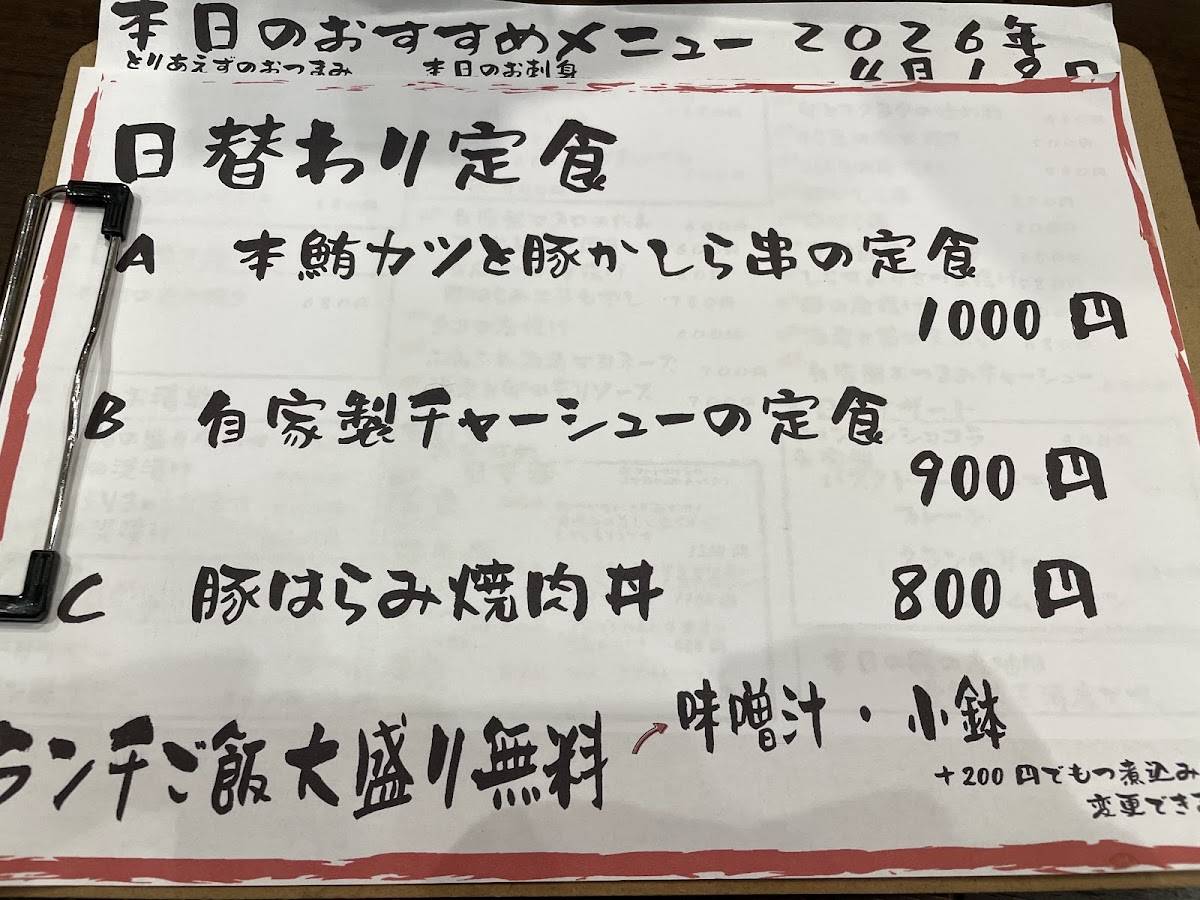 本日のおすすめメニュー 2026年
とりあえずのおつまみ 本日のお刺身
日替わり定食
A 本鮪カツと豚かしら串の定食
1000円
B 自家製チャーシューの定食
900円
C 豚はらみ焼肉丼 800円
味噌汁・小鉢
ランチご飯大盛り無料
+200円でもつ煮込み
変更でき